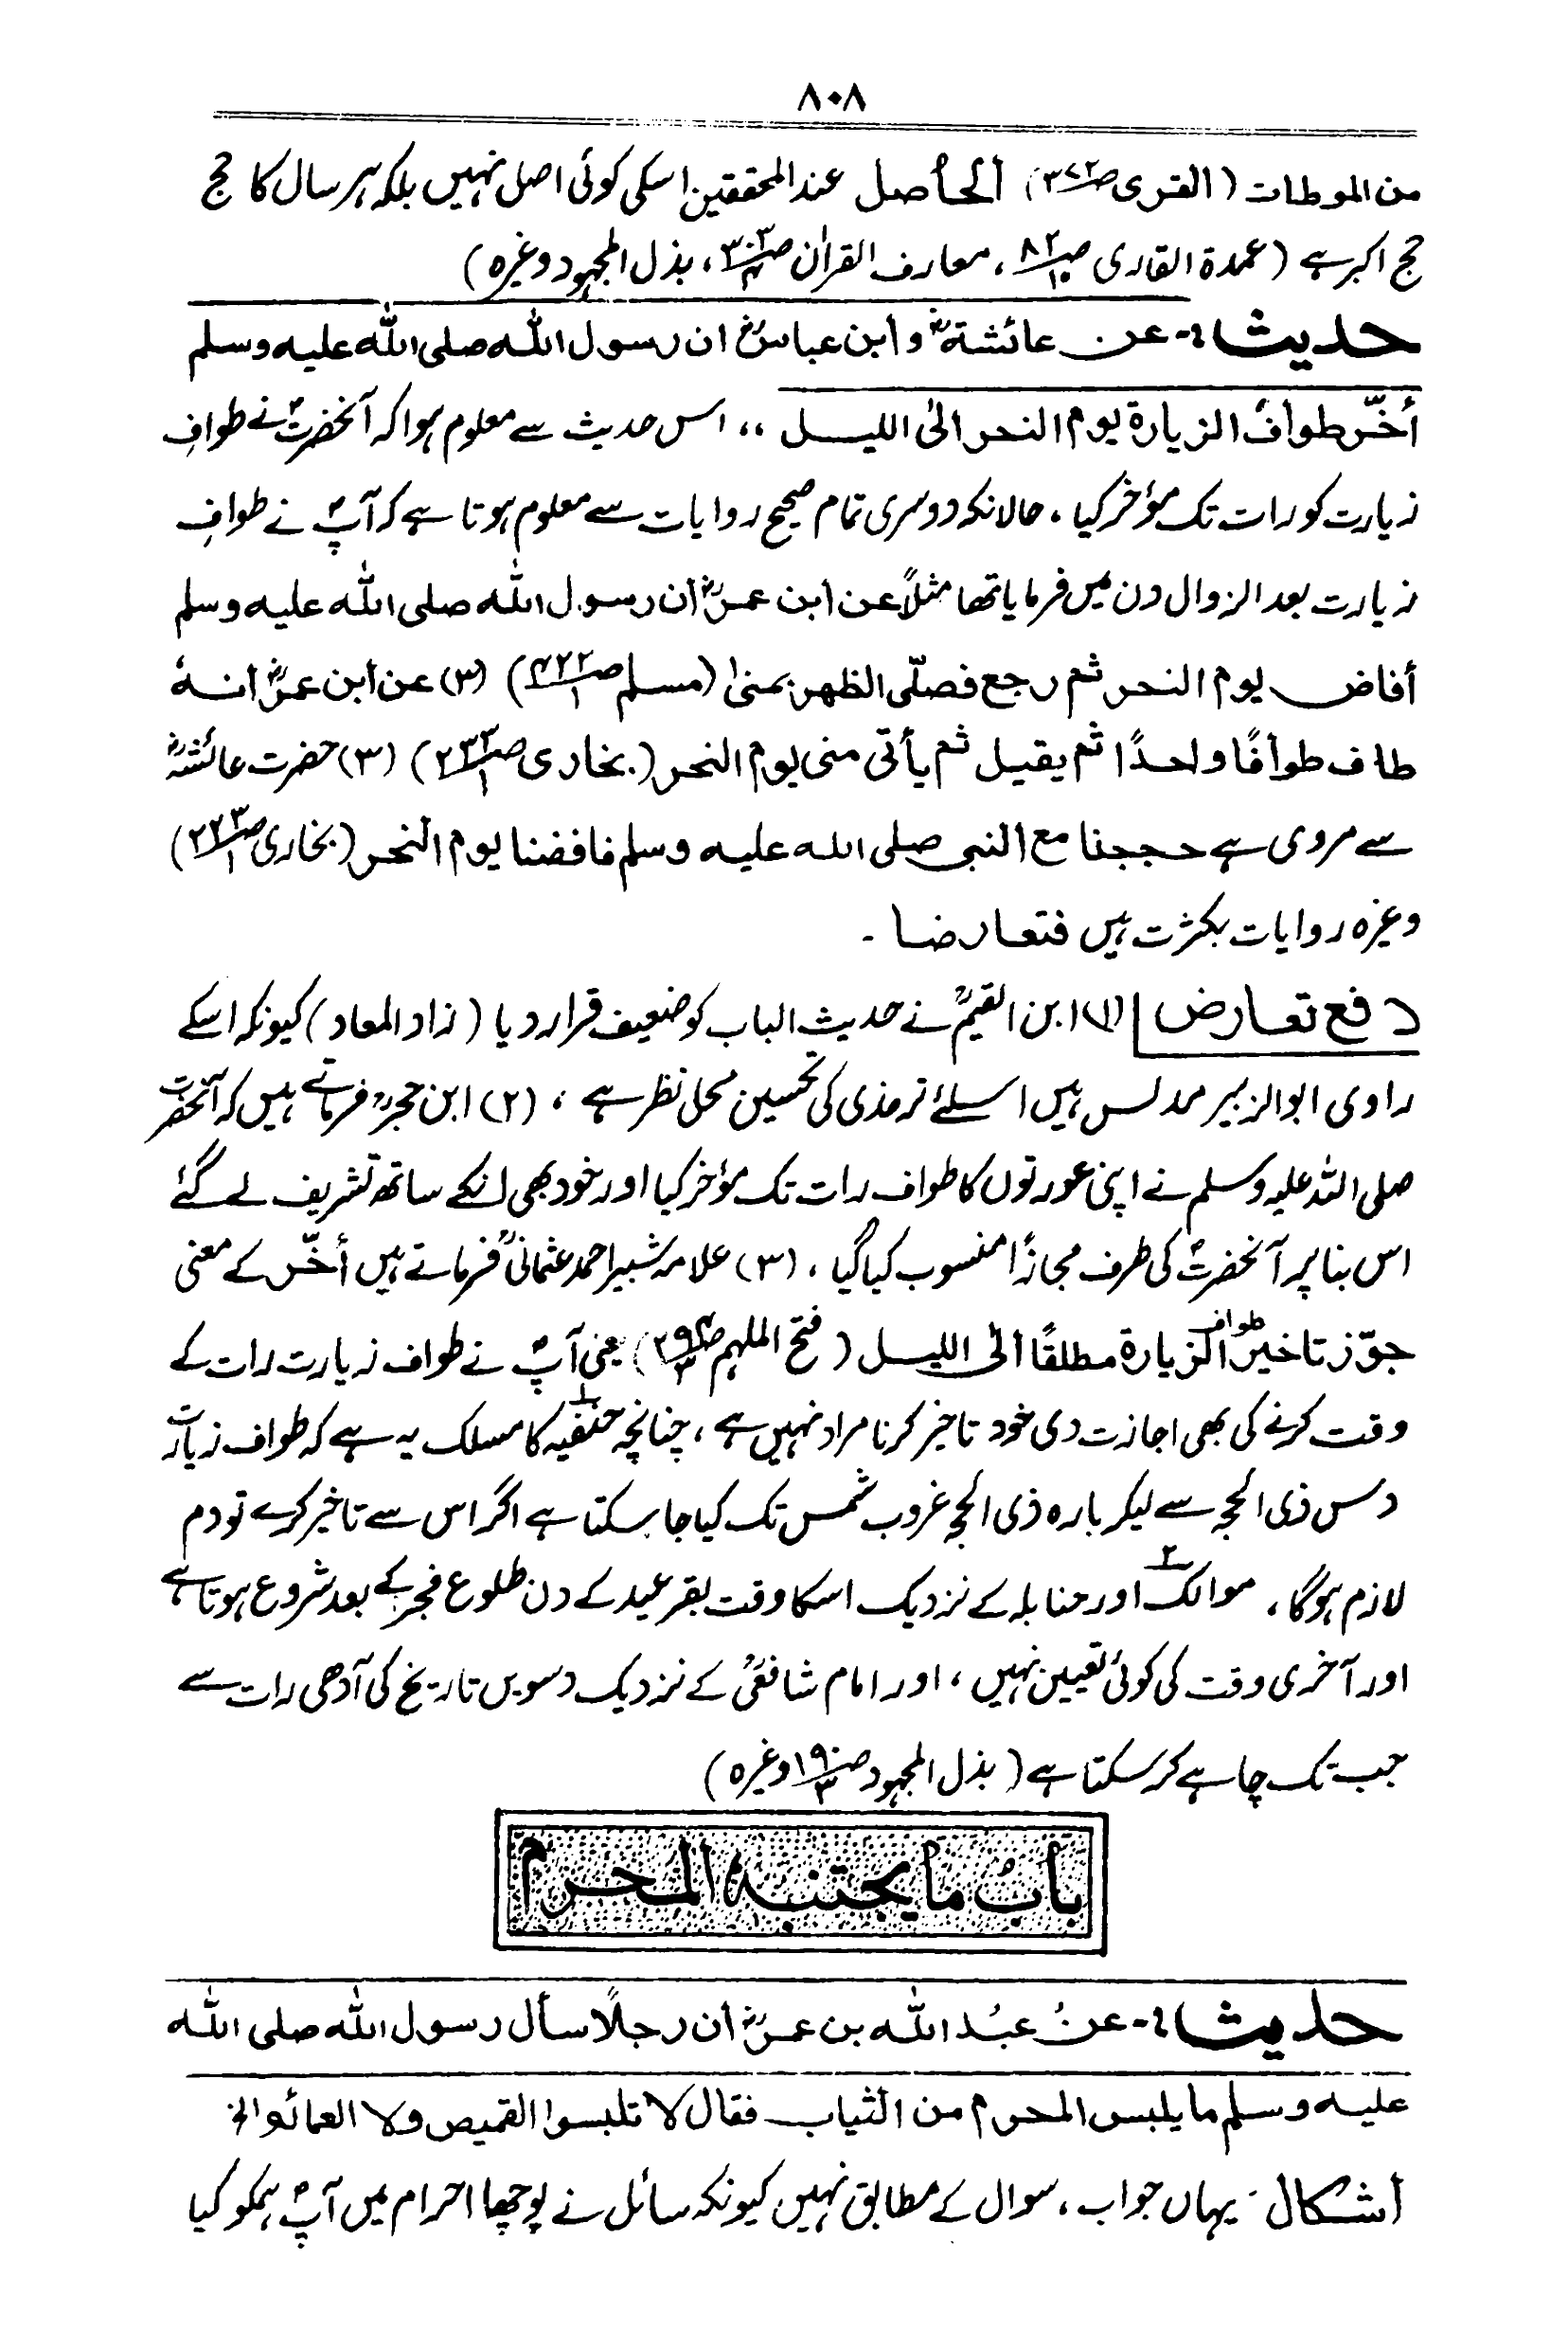 ۸۰۸
من الموطات (القری ص۳۷۲) الحاصل عند المحققین اسکی کوئی اصل نہیں بلکہ ہر سال کا حج
حج اکبر ہے (عمدۃ القاری ص۸۲/۱۰، معارف القرآن ص۳۰۳/۴، بذل المجہود وغیرہ)
حدیث:- عن عائشةؓ وابن عباسؓ ان رسول اللّٰه صلی اللّٰه علیه وسلم
أخّر طوافَ الزیارة یوم النحر الی اللیل ،، اس حدیث سے معلوم ہوا کہ آنحضرتؐ نے طوافِ
زیارت کو رات تک مؤخر کیا، حالانکہ دوسری تمام صحیح روایات سے معلوم ہوتا ہے کہ آپؐ نے طوافِ
زیارت بعد الزوال دن میں فرمایا تھا مثلاً عن ابن عمرؓ أن رسول اللّٰه صلی اللّٰه علیه وسلم
أفاض یوم النحر ثم رجع فصلّی الظهر بمنیٰ (مسلم ص۴۲۲/۱) (۳) عن ابن عمرؓ انهٗ
طاف طوافًا واحدًا ثم یقیل ثم یأتی منی یوم النحر (بخاری ص۲۳۳/۱) (۳) حضرت عائشہؓ
سے مروی ہے حججنا مع النبی صلی الله علیه وسلم فافضنا یوم النحر (بخاری ص۲۳۳/۱)
وغیرہ روایات بکثرت ہیں فتعارضا ۔
دفع تعارض (۱) ابن القیمؒ نے حدیث الباب کو ضعیف قرار دیا (زاد المعاد) کیونکہ اسکے
راوی ابوالزبیر مدلس ہیں اسلئے ترمذی کی تحسین محل نظر ہے، (۲) ابن حجرؒ فرماتے ہیں کہ آنحضرت
صلی اللہ علیہ وسلم نے اپنی عورتوں کا طواف رات تک مؤخر کیا اور خود بھی انکے ساتھ تشریف لے گئے
اس بنا پر آنحضرتؐ کی طرف مجازًا منسوب کیا گیا، (۳) علامہ شبیر احمد عثمانیؒ فرماتے ہیں أخّر کے معنی
جوّز تاخیر طواف الزیارة مطلقًا الی اللیل (فتح الملہم ص/۳) یعنی آپؐ نے طواف زیارت رات کے
وقت کرنے کی بھی اجازت دی خود تاخیر کرنا مراد نہیں ہے، چنانچہ حنفیہ۱ کا مسلک یہ ہے کہ طواف زیارت
دس ذی الحجہ سے لیکر بارہ ذی الحجہ غروب شمس تک کیا جا سکتا ہے اگر اس سے تاخیر کرے تو دم
لازم ہوگا، موالک۲ اور حنابلہ کے نزدیک اسکا وقت بقر عید کے دن طلوع فجر کے بعد شروع ہوتا ہے
اور آخری وقت کی کوئی تعیین نہیں، اور امام شافعیؒ کے نزدیک دسویں تاریخ کی آدھی رات سے
جب تک چاہے کر سکتا ہے (بذل المجہود ص۱۹۰/۳ وغیرہ)
بابُ ما یجتنبه المحرم
حدیث:- عن عبد اللّٰه بن عمرؓ أن رجلًا سأل رسول اللّٰه صلی اللّٰه
علیه وسلم ما یلبس المحرم من الثیاب فقال لا تلبسوا القمیص ولا العمائم الخ
أشکال:- یہاں جواب، سوال کے مطابق نہیں کیونکہ سائل نے پوچھا احرام میں آپؐ ہمکو کیا